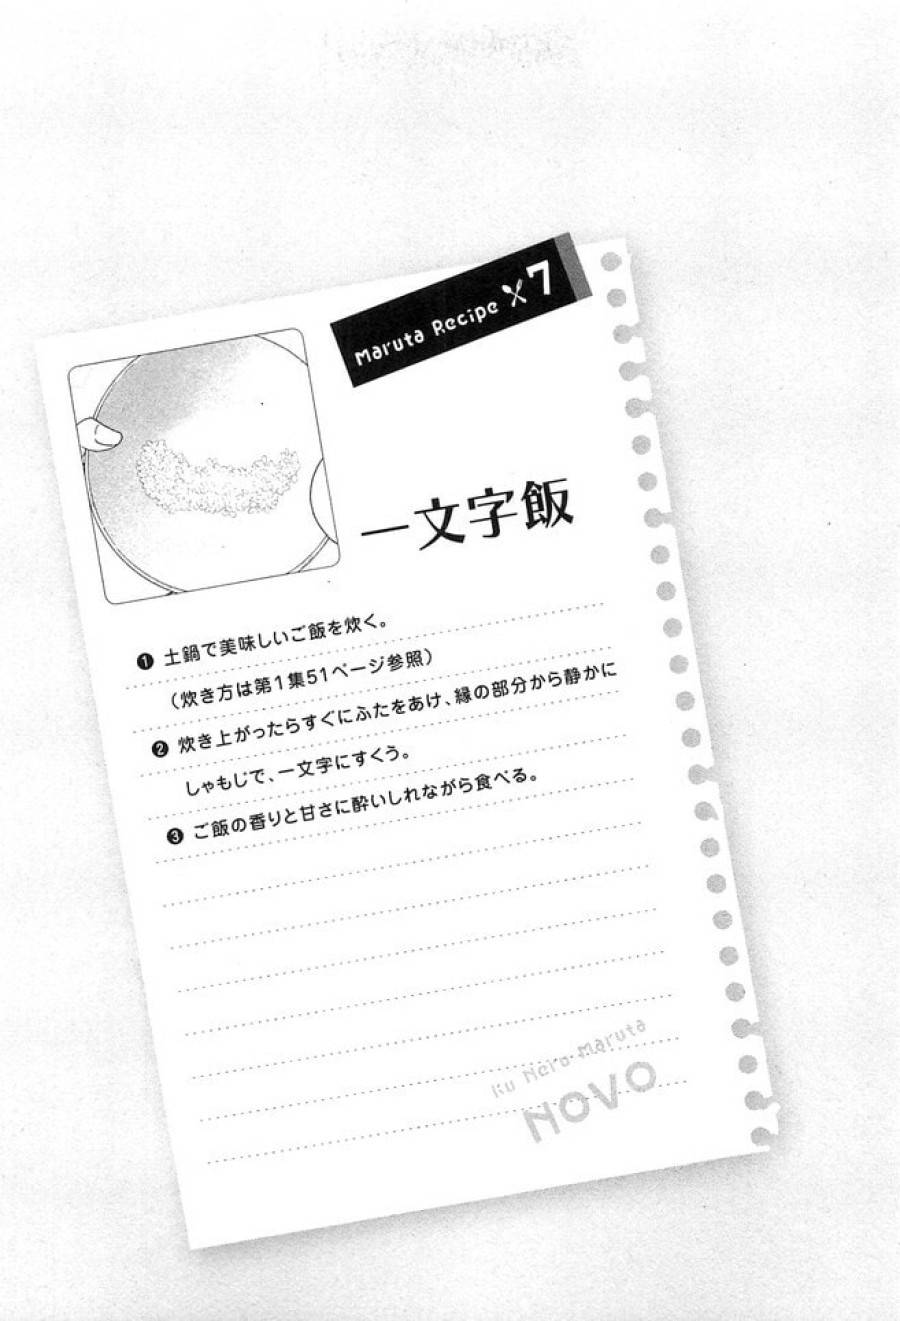 Maruta Recipe 7
一文字飯
❶ 土鍋で美味しいご飯を炊く。
（炊き方は第1集51ページ参照）
❷ 炊き上がったらすぐにふたをあけ、縁の部分から静かに
しゃもじで、一文字にすくう。
❸ ご飯の香りと甘さに酔いしれながら食べる。
Ku Nero Maruta
NOVO